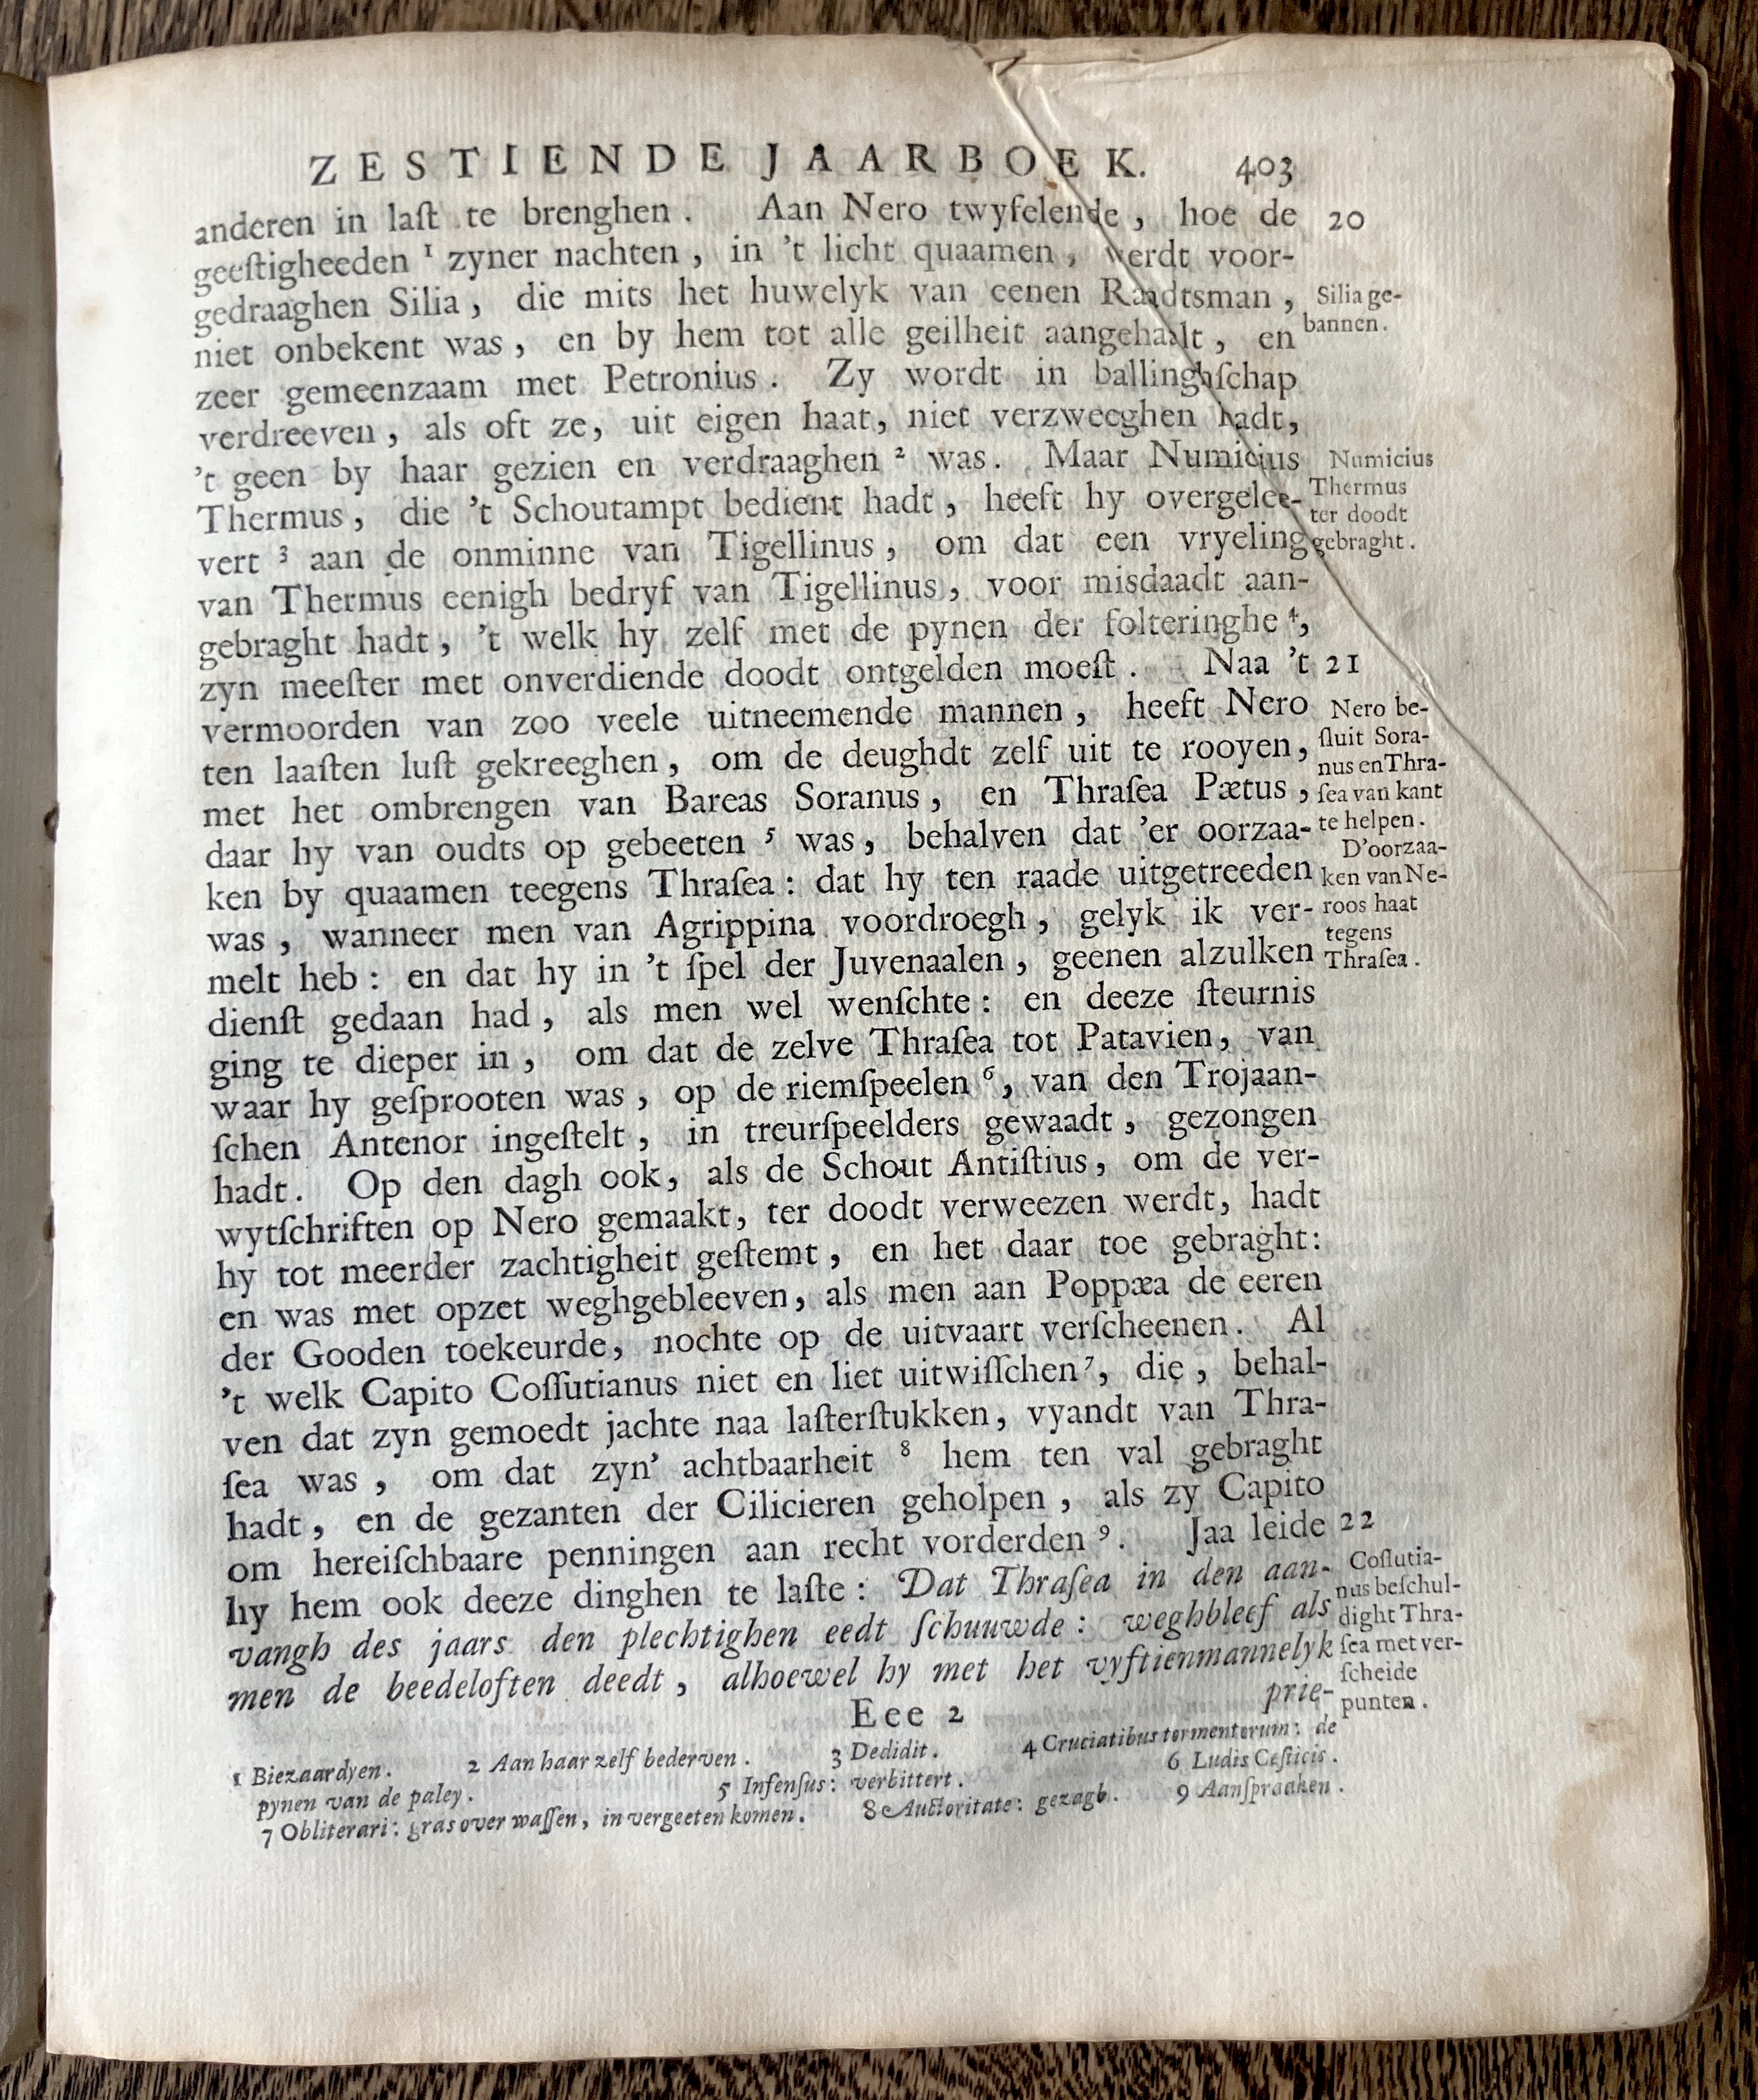 ZESTIENDE JAARBOEK. 403
anderen in laſt te brenghen. Aan Nero twyfelende, hoe de 20
geeſtigheeden ¹ zyner nachten, in 't licht quaamen, werdt voor-
gedraaghen Silia, die mits het huwelyk van eenen Raadtsman,
niet onbekent was, en by hem tot alle geilheit aangehaalt, en
zeer gemeenzaam met Petronius. Zy wordt in ballinghſchap
verdreeven, als oft ze, uit eigen haat, niet verzweeghen hadt,
't geen by haar gezien en verdraaghen ² was. Maar Numicius
Thermus, die 't Schoutampt bedient hadt, heeft hy overgelee-
vert ³ aan de onminne van Tigellinus, om dat een vryeling
van Thermus eenigh bedryf van Tigellinus, voor misdaadt aan-
gebraght hadt, 't welk hy zelf met de pynen der folteringhe ⁴,
zyn meeſter met onverdiende doodt ontgelden moeſt. Naa 't 21
vermoorden van zoo veele uitneemende mannen, heeft Nero
ten laaſten luſt gekreeghen, om de deughdt zelf uit te rooyen,
met het ombrengen van Bareas Soranus, en Thraſea Pætus,
daar hy van oudts op gebeeten ⁵ was, behalven dat 'er oorzaa-
ken by quaamen teegens Thraſea: dat hy ten raade uitgetreeden
was, wanneer men van Agrippina voordroegh, gelyk ik ver-
melt heb: en dat hy in 't ſpel der Juvenaalen, geenen alzulken
dienſt gedaan had, als men wel wenſchte: en deeze ſteurnis
ging te dieper in, om dat de zelve Thraſea tot Patavien, van
waar hy geſprooten was, op de riemſpeelen ⁶, van den Trojaan-
ſchen Antenor ingeſtelt, in treurſpeelders gewaadt, gezongen
hadt. Op den dagh ook, als de Schout Antiſtius, om de ver-
wytſchriften op Nero gemaakt, ter doodt verweezen werdt, hadt
hy tot meerder zachtigheit geſtemt, en het daar toe gebraght:
en was met opzet weghgebleeven, als men aan Poppæa de eeren
der Gooden toekeurde, nochte op de uitvaart verſcheenen. Al
't welk Capito Coſſutianus niet en liet uitwiſſchen⁷, die, behal-
ven dat zyn gemoedt jachte naa laſterſtukken, vyandt van Thra-
ſea was, om dat zyn' achtbaarheit ⁸ hem ten val gebraght
hadt, en de gezanten der Cilicieren geholpen, als zy Capito
om hereiſchbaare penningen aan recht vorderden ⁹. Jaa leide 22
hy hem ook deeze dinghen te laſte: Dat Thraſea in den aan-
vangh des jaars den plechtighen eedt ſchuuwde: weghbleef als
men de beedeloften deedt, alhoewel hy met het vyftienmannelyk
prie-
Eee 2
Silia ge-
bannen.
Numicius
Thermus
ter doodt
gebraght.
Nero be-
ſluit Sora-
nus en Thra-
ſea van kant
te helpen.
D'oorzaa-
ken van Ne-
roos haat
tegens
Thraſea.
Coſſutia-
nus beſchul-
dight Thra-
ſea met ver-
ſcheide
punten.
1 Biezaardyen. 2 Aan haar zelf bederven. 3 Dedidit. 4 Cruciatibus tormentorum: de
pynen van de paley. 5 Infenſus: verbittert. 6 Ludis Ceſticis.
7 Obliterari: gras over waſſen, in vergeeten komen. 8 Auctoritate: gezagh. 9 Aanſpraaken.